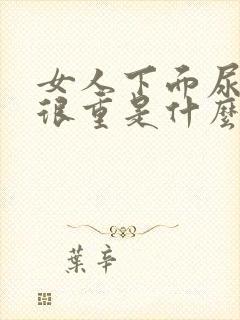 女人下面尿
很重是什麼
葉辛